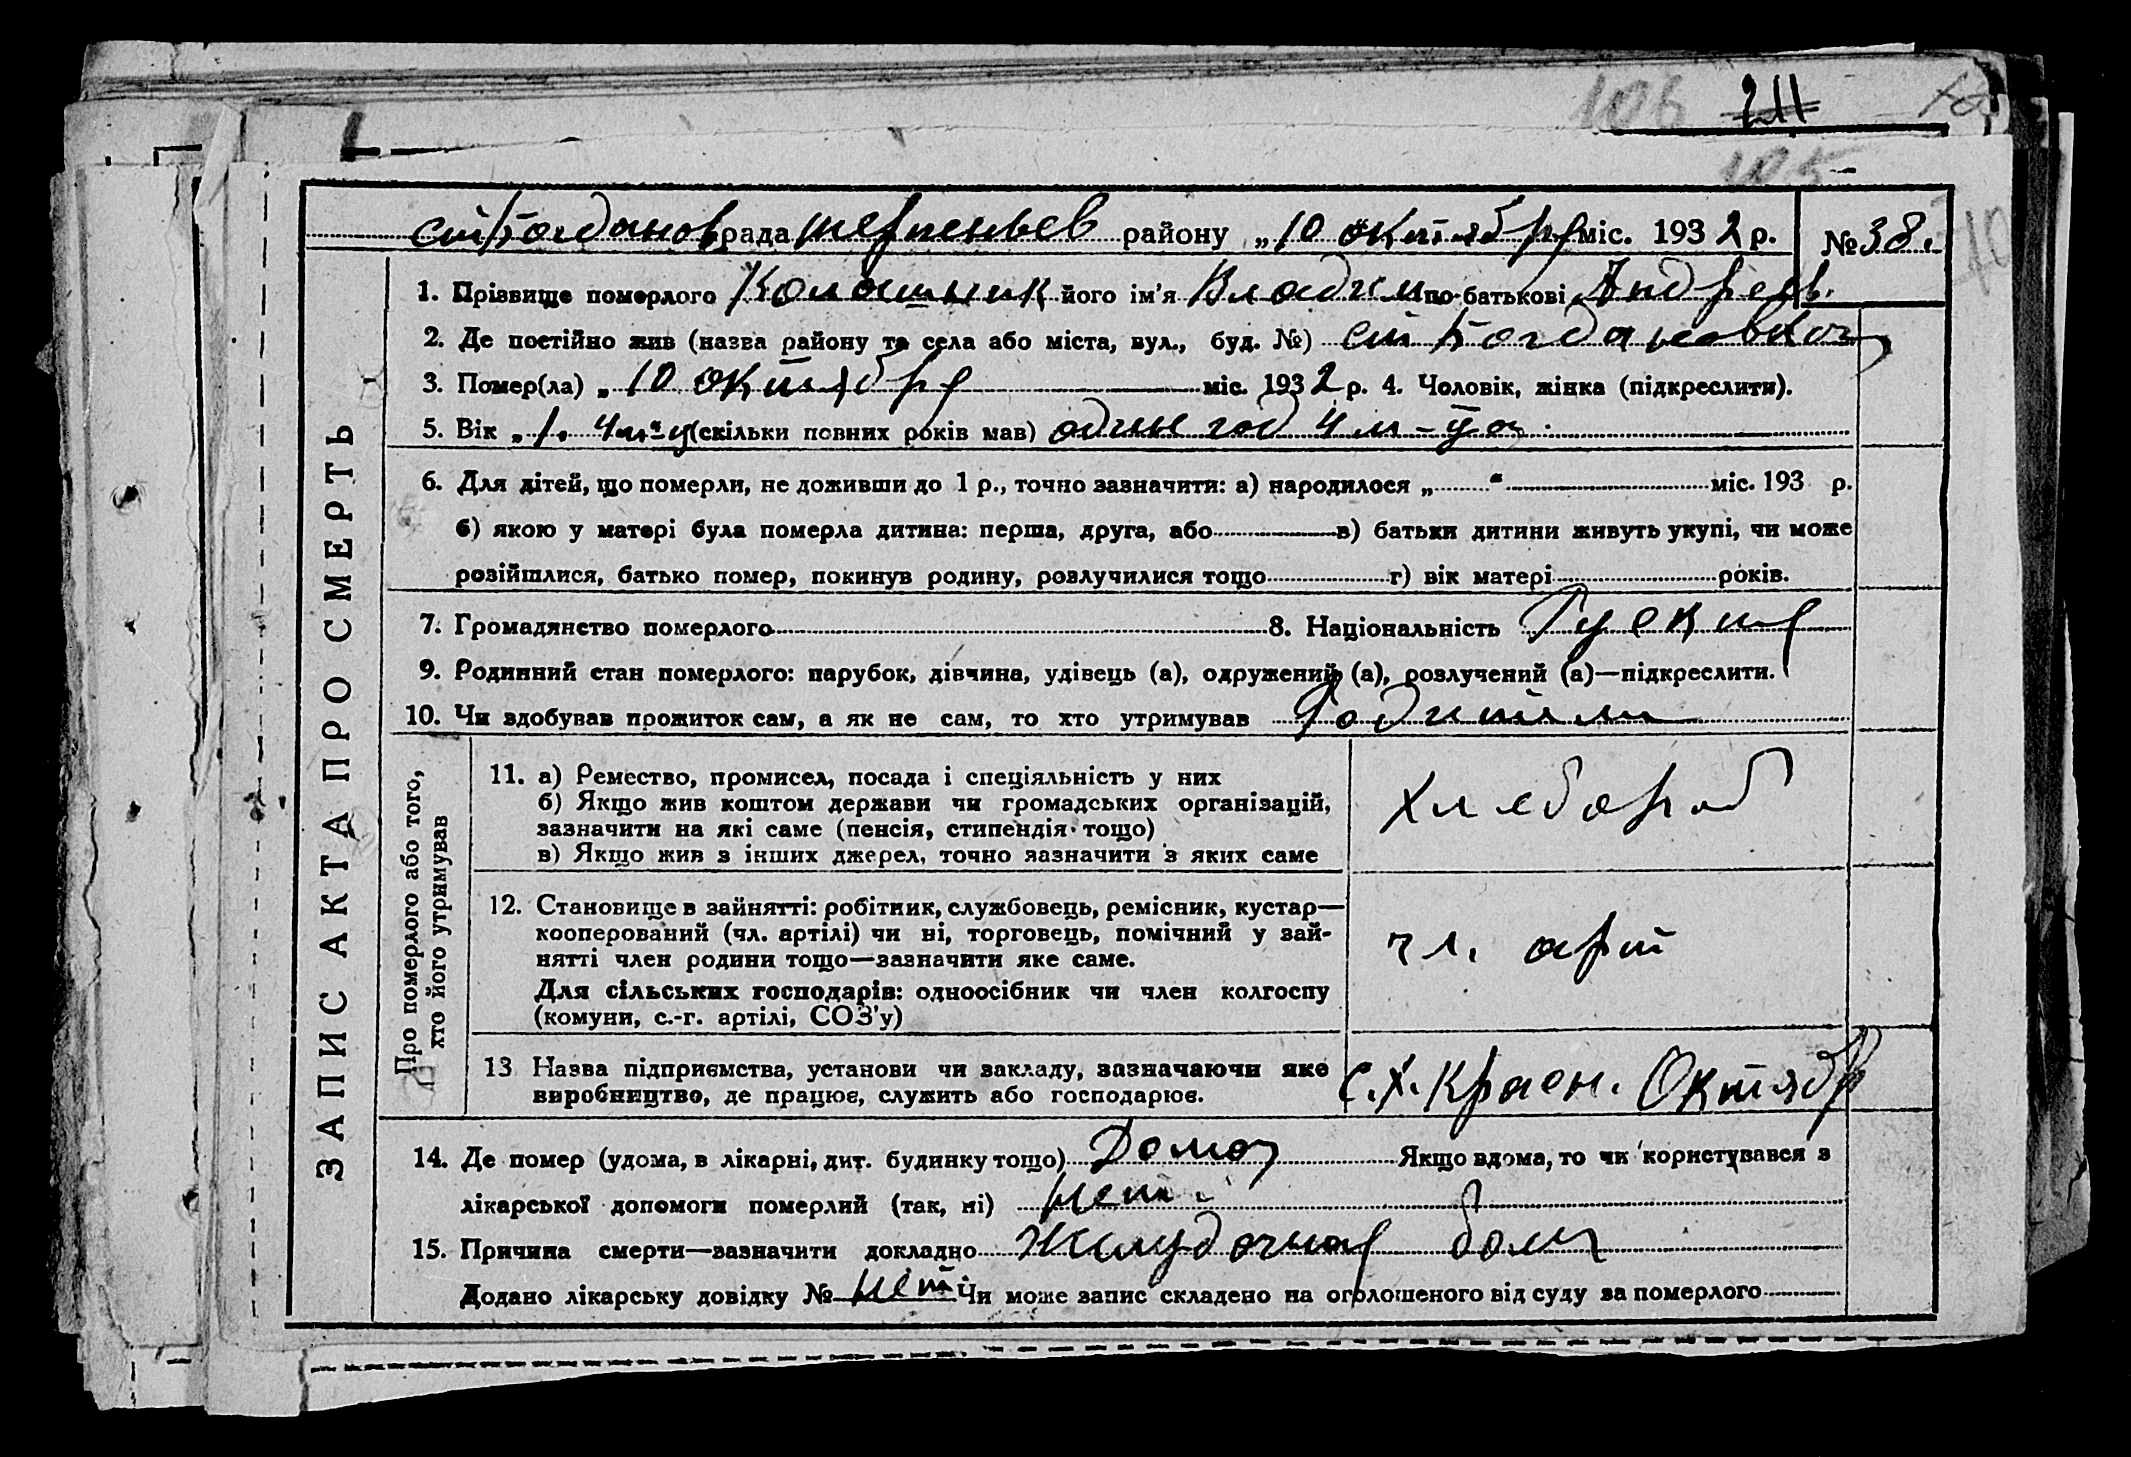 106 211
105
с/Богданов рада терпеньев району „10 октября міс. 1932 р. № 38.
1. Прізвище померлого Колошник його ім'я Владим по-батькові Андреев.
2. Де постійно жив (назва району та села або міста, вул., буд. №) с/ Богдановка
3. Помер(ла) „ 10 октября міс. 1932 р. 4. Чоловік, жінка (підкреслити).
5. Вік „ 1. 4 м-ц (скільки повних років мав) один год 4 м-ца.
6. Для дітей, що померли, не доживши до 1 р., точно зазначити: а) народилося „ “ міс. 193 р.
б) якою у матері була померла дитина: перша, друга, або в) батьки дитини живуть укупі, чи може
розійшлися, батько помер, покинув родину, розлучилися тощо г) вік матері років.
7. Громадянство померлого 8. Національність Руские
9. Родинний стан померлого: парубок, дівчина, удівець (а), одружений (а), розлучений (а)—підкреслити.
10. Чи здобував прожиток сам, а як не сам, то хто утримував Родители
ЗАПИС АКТА ПРО СМЕРТЬ
Про померлого або того,
хто його утримував
11. а) Ремество, промисел, посада і спеціяльність у них
б) Якщо жив коштом держави чи громадських організацій,
зазначити на які саме (пенсія, стипендія тощо)
в) Якщо жив з інших джерел, точно зазначити з яких саме
хлебороб
12. Становище в зайнятті: робітник, службовець, ремісник, кустар—
кооперований (чл. артілі) чи ні, торговець, помічний у зай-
нятті член родини тощо—зазначити яке саме.
Для сільських господарів: одноосібник чи член колгоспу
(комуни, с.-г. артілі, СОЗ'у)
чл. арт
13 Назва підприємства, установи чи закладу, зазначаючи яке
виробництво, де працює, служить або господарює.
С.Х. Красн. Октябр
14. Де помер (удома, в лікарні, дит. будинку тощо) Дома Якщо вдома, то чи користувався з
лікарської допомоги померлий (так, ні) нет
15. Причина смерти—зазначити докладно Желудочная боли
Додано лікарську довідку № нет Чи може запис складено на оголошеного від суду за померлого